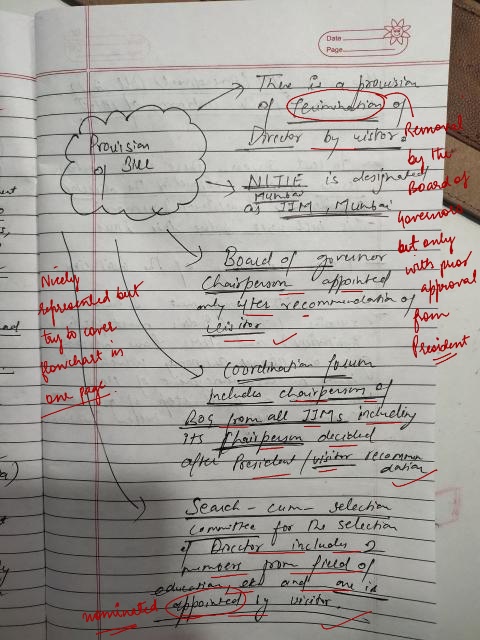 Date
Page
There is a provision
of Termination of
Director by vistor.
Provision
of Bill
NITIE is designated
Mumbai
as IIM, Mumbai
Board of governor
Chairperson appointed
only after recommendation of
Visitor
Coordination forum
includes chairperson of
BOG from all IIMs including
its Chairperson decided
after President / visitor recommen
dation
Search - cum - selection
committee for the selection
of Director includes 2
members from field of
education, etc and one is
appointed by visitor.
Removal
by the
Board of
Governors
but only
with prior
approval
from
President
Nicely
represented but
try to cover
flowchart in
one page
nominated